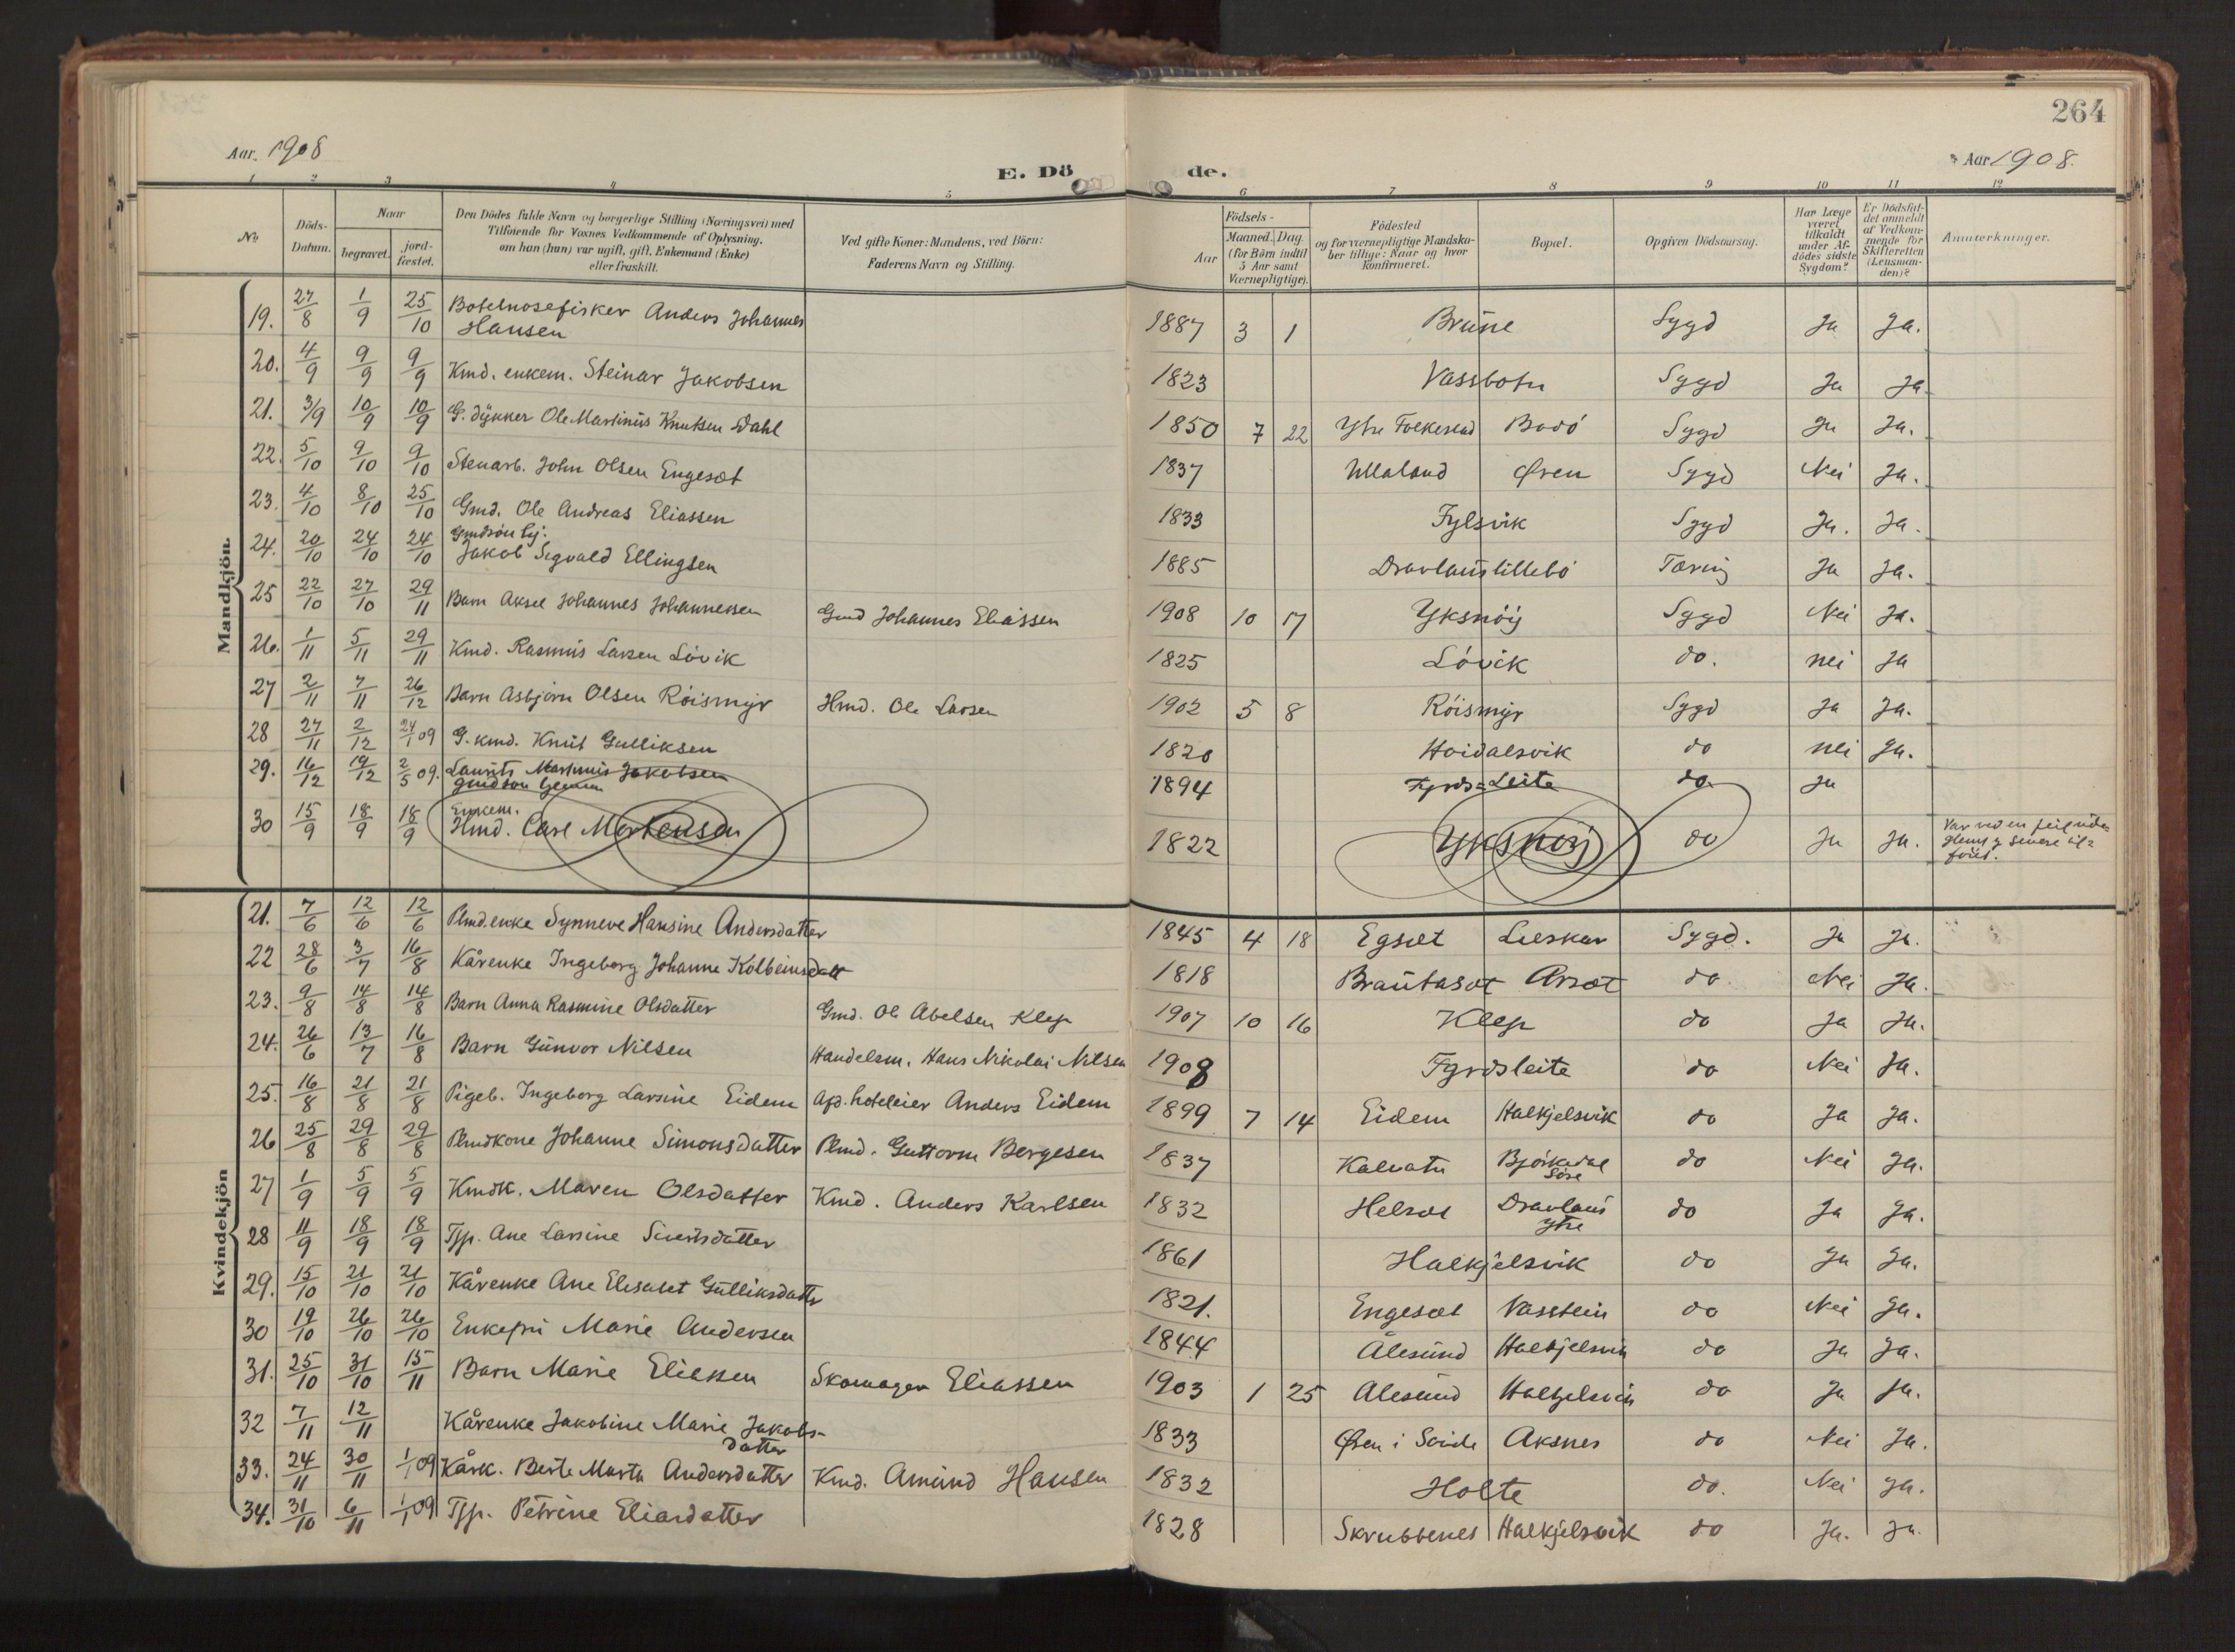 264
Aar. 1908
E. Dö
de.
Aar 1908.
1 2 3 4 5 6 7 8 9 10 11 12
Nr.
Döds-Datum.
Naar
begravet.
jord-fæstet.
Den Dödes fulde Navn og borgerlige Stilling (Næringsvei) med
Tilföiende for Voxnes Vedkommende af Oplysning,
om han (hun) var ugift, gift, Enkemand (Enke)
eller fraskilt.
Ved gifte Koner: Mandens, ved Börn:
Faderens Navn og Stilling.
Födsels-
Aar
Maaned. Dag
(for Börn indtil
5 Aar samt
Værnepligtige).
Födested
og for værnepligtige Mandska-
ber tillige: Naar og hvor
konfirmeret.
Bopæl.
Opgiven Dödsaarsag.
Har Læge
været
tilkaldt
under Af-
dödes sidste
Sygdom?
Er Dödsfal-
det anmeldt
af Vedkom-
mende for
Skifteretten
(Lensman-
den)?
Anmerkninger.
Mandkjön.
19. 27/8 1/9 25/10 Botelnosefisker Anders Johannes Hansen 1887 3 1 Brune Sygd Ja Ja.
20. 4/9 9/9 9/9 Kmd. enkem. Steinar Jakobsen 1823 Vassbotn Sygd Ja Ja
21. 3/9 10/9 10/9 G. dykker Ole Martinus Knutsen Dahl 1850 7 22 Ytre Folkestad Bodö Sygd Ja Ja.
22. 5/10 9/10 9/10 Stenarb. John Olsen Engesæt 1837 Ullaland Øren Sygd Nei Ja.
23. 4/10 8/10 25/10 Gmd. Ole Andreas Eliassen 1833 Fylsvik Sygd Ja. Ja.
24. 20/10 24/10 24/10 Gmdsön
Jakob Sigvald Ellingsen 1885 Dravlauslillebö Tæring Ja Ja.
25 22/10 27/10 29/11 Barn Aksel Johannes Johannessen Gmd Johannes Eliassen 1908 10 17 Yksnöy Sygd Nei Ja.
26. 1/11 5/11 29/11 Kmd. Rasmus Larsen Lövik 1825 Lövik do. nei Ja
27 2/11 7/11 26/12 Barn Asbjörn Olsen Röismyr Hmd. Ole Larsen 1902 5 8 Röismyr Sygd Ja Ja.
28 27/11 2/12 24/1 09 G. kmd. Knut Gulliksen 1820 Hoidalsvik do nei Ja.
29. 16/12 19/12 2/5 09. Laurits Martinus Jakobsen
gmdsön 1894 Fyrds-Leite do Ja
30 15/9 18/9 18/9 Enkem.
Hmd. Carl Mortensen 1822 Yksnöj do Ja Ja. Var ved en feil
Kvindekjön
21. 7/6 12/6 12/6 Plmd.enke Synneve Hansine Andersdatter 1845 4 18 Egset Leeskar Sygd. Ja Ja.
22 28/6 3/7 16/8 Kårenke Ingeborg Johanne Kolbeinsdatt 1818 Brautasæt Arsæt do. Nei Ja.
23. 9/8 14/8 14/8 Barn Anna Rasmine Olsdatter Gmd. Ole Abelsen Klep 1907 10 16 Klep do Ja Ja.
24. 26/6 13/7 16/8 Barn Gunvor Nilsen Handelsm. Hans Nikolai Nilsen 1908 Fyrdsleite do Nei Ja.
25. 16/8 21/8 21/8 Pigeb. Ingeborg Larsine Eidem ap. hoteleier Anders Eidem 1899 7 14 Eidem Halkjelsvik do Ja Ja.
26 25/8 29/8 29/8 Plmdkone Johanne Simonsdatter Plmd. Guttorm Bergesen 1837 Kalvatn Björkedal Söre do Nei Ja.
27 1/9 5/9 5/9 Kmdk. Maren Olsdatter Kmd. Anders Karlsen 1832 Helsæt Dravlaus Ytre do Ja Ja.
28 11/9 18/9 18/9 Tjp. Ane Larsine Sivertsdatter 1861 Halkjelsvik do Ja Ja.
29. 15/10 21/10 21/10 Kårenke Ane Elesabet Gulliksdatter 1821. Engesæt Vasstein do Nei Ja.
30 19/10 26/10 26/10 Enkefru Marie Andersen 1844 Ålesund Halkjelsvik do Ja Ja.
31. 25/10 31/10 15/11 Barn Marie Eliassen Skomager Eliassen 1903 1 25 Alesund Halkjelsvik do Ja Ja.
32 7/11 12/11 Kårenke Jakobine Marie Jakobs-
datter 1833 Øren i Aksnes do Nei Ja.
33. 24/11 30/11 1/1 09 Kårk. Berte Marta Andersdatter Kmd. Amund Hansen 1832 Holte do. Nei Ja.
34. 31/10 6/11 1/1 09 Tjp. Petrine Eliasdatter 1828 Skrubbenes Halkjelsvik do Ja. Ja.